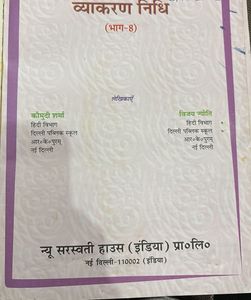 व्याकरण निधि
(भाग-8)
लेखिकाएँ
कौमुदी शर्मा
हिंदी विभाग
दिल्ली पब्लिक स्कूल
आर०के०पुरम्
नई दिल्ली
विजय ज्योति
हिंदी विभाग
दिल्ली पब्लिक स्कूल
आर०के०पुरम्
नई दिल्ली
न्यू सरस्वती हाउस (इंडिया) प्रा०लि०
नई दिल्ली-110002 (इंडिया)